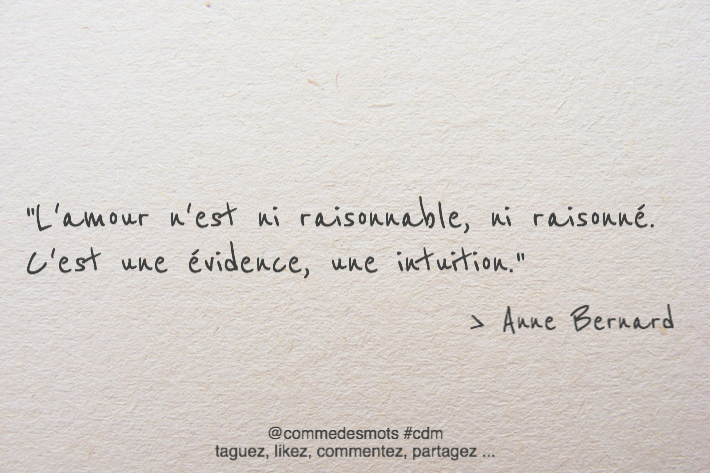 "L'amour n'est ni raisonnable, ni raisonné.
C'est une évidence, une intuition."
> Anne Bernard
@commedesmots #cdm
taguez, likez, commentez, partagez ...